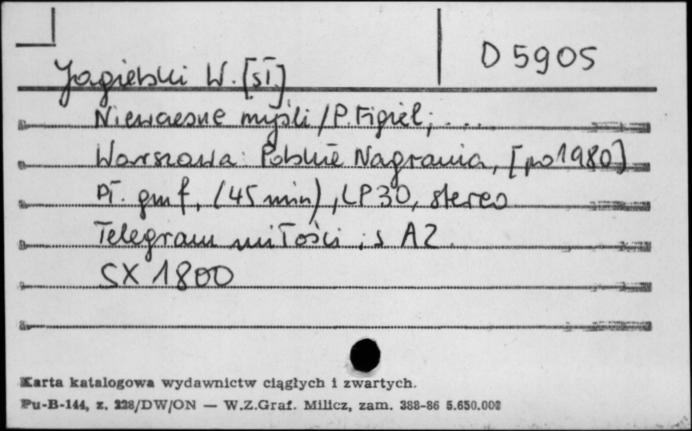 D 5905
Jagielski W. [sł.]
Niewczesne myśli / P. Figiel; ...
Warszawa: Polskie Nagrania, [po 1980]
Pł. gmf, (45 min), LP 30, stereo
Telegram miłości; s A2
SX 1800
Karta katalogowa wydawnictw ciągłych i zwartych.
Pu-B-144, z. 228/DW/ON — W.Z.Graf. Milicz, zam. 388-86 5.650.000